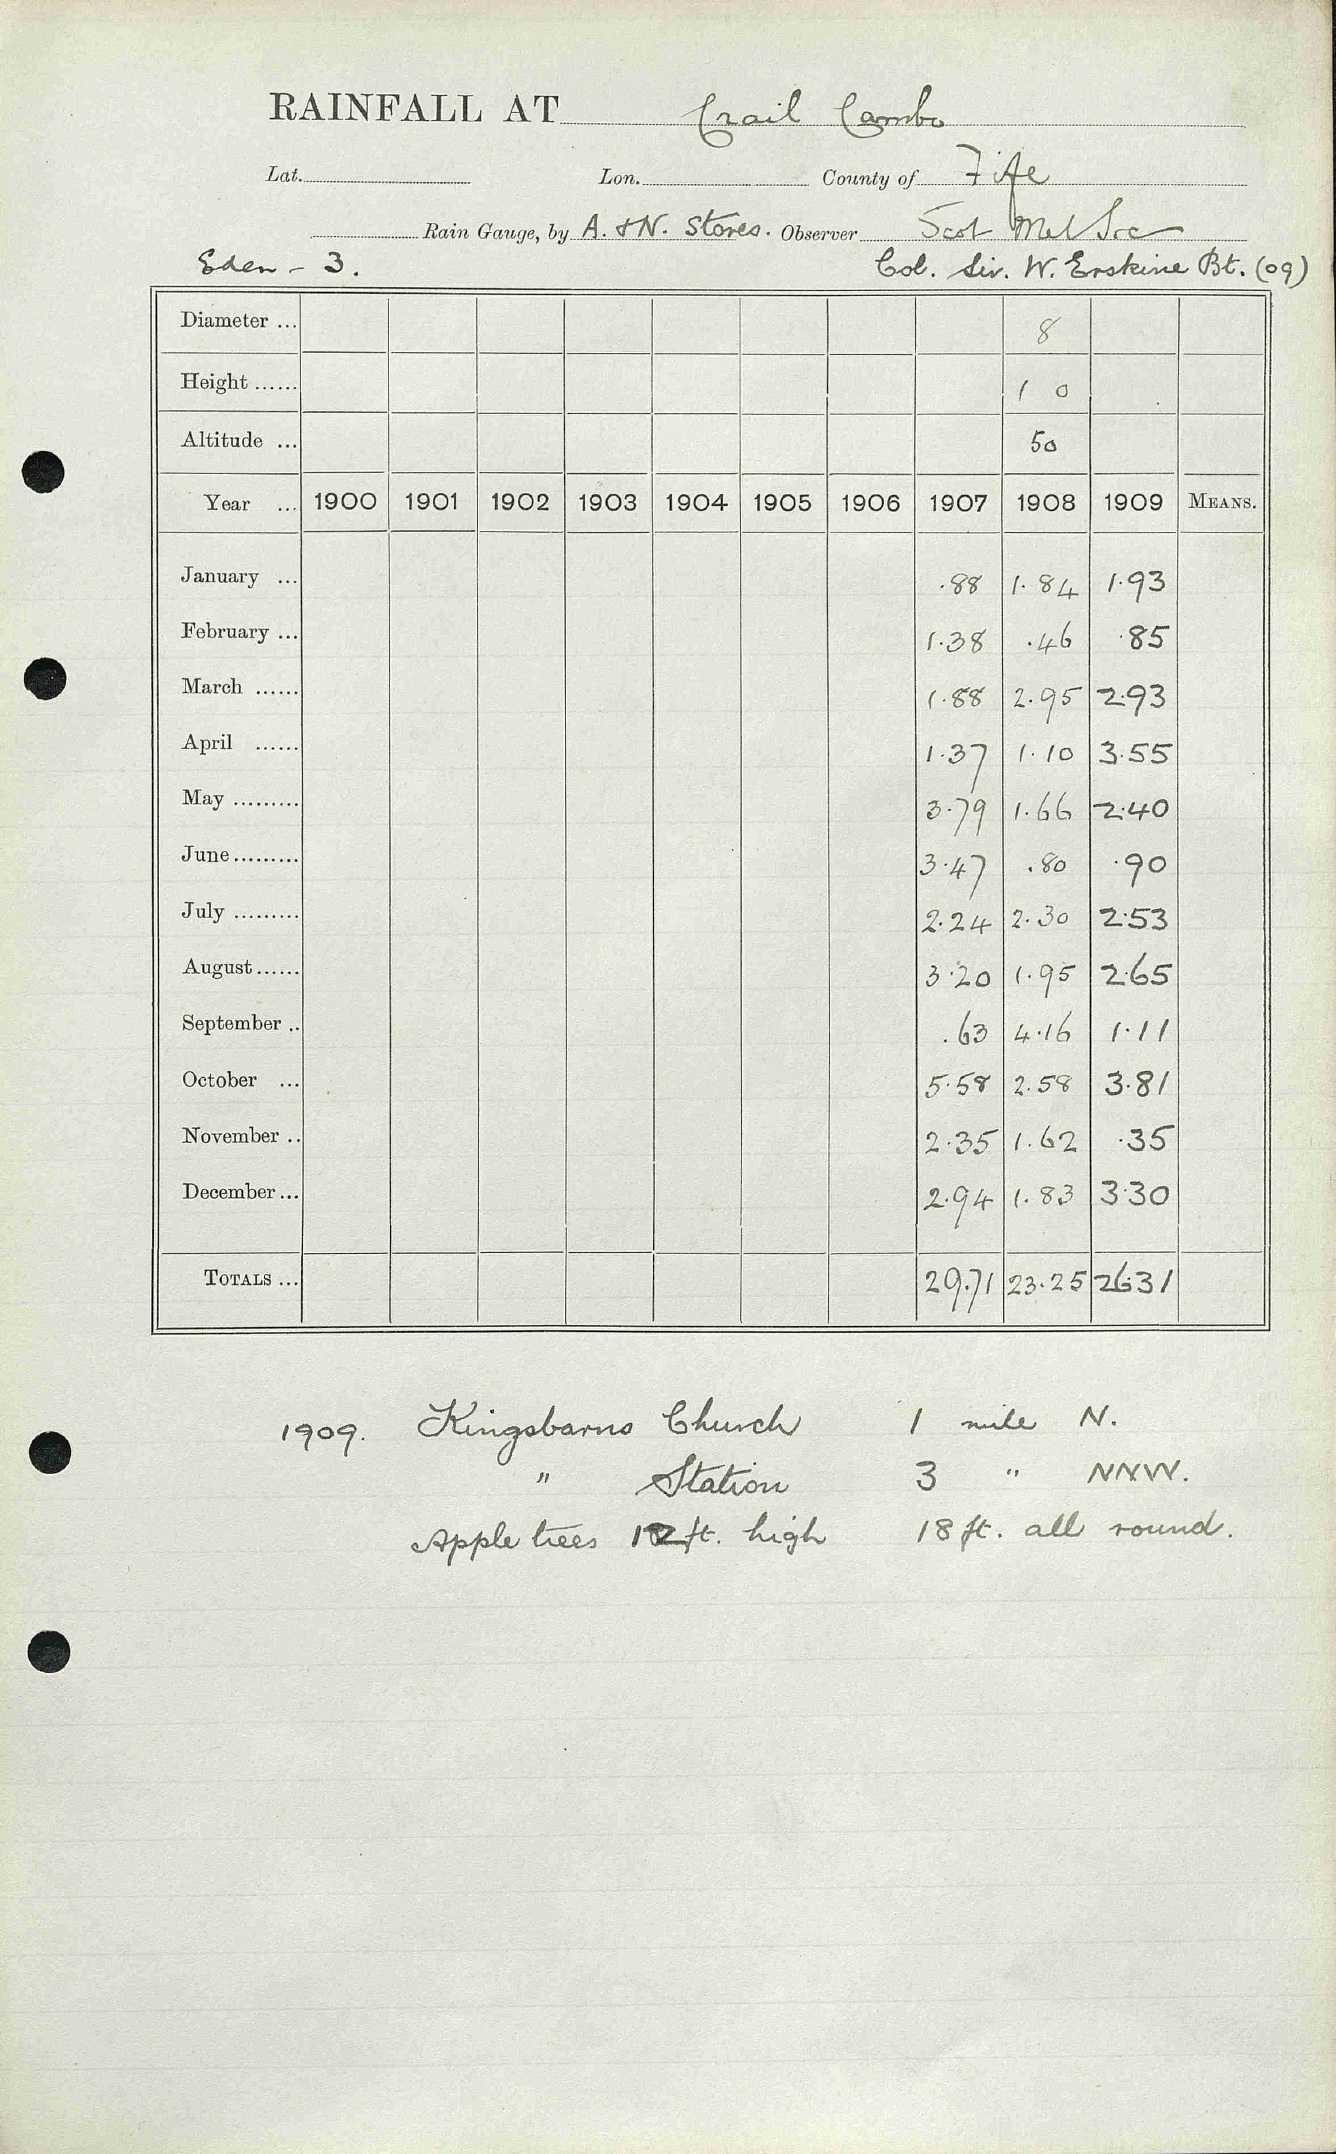 RAINFALL AT Crail Cambo
Lat. Lon. County of Fife
Rain Gauge, by A. & N. Stores. Observer Scot Met Soc
Eden - 3. Col. Sir. W. Erskine Bt. (09)
Diameter ... 8
Height ...... 1 0
Altitude ... 50
Year ... 1900 1901 1902 1903 1904 1905 1906 1907 1908 1909 MEANS.
January ... .88 1.84 1.93
February ... 1.38 .46 .85
March ...... 1.88 2.95 2.93
April ...... 1.37 1.10 3.55
May ......... 3.79 1.66 2.40
June ......... 3.47 .80 .90
July ......... 2.24 2.30 2.53
August ...... 3.20 1.95 2.65
September .. .63 4.16 1.11
October ... 5.58 2.58 3.81
November .. 2.35 1.62 .35
December ... 2.94 1.83 3.30
TOTALS ... 29.71 23.25 26.31
1909. Kingsbarns Church 1 mile N.
" Station 3 " NNW.
Apple trees 12 ft. high 18 ft. all round.